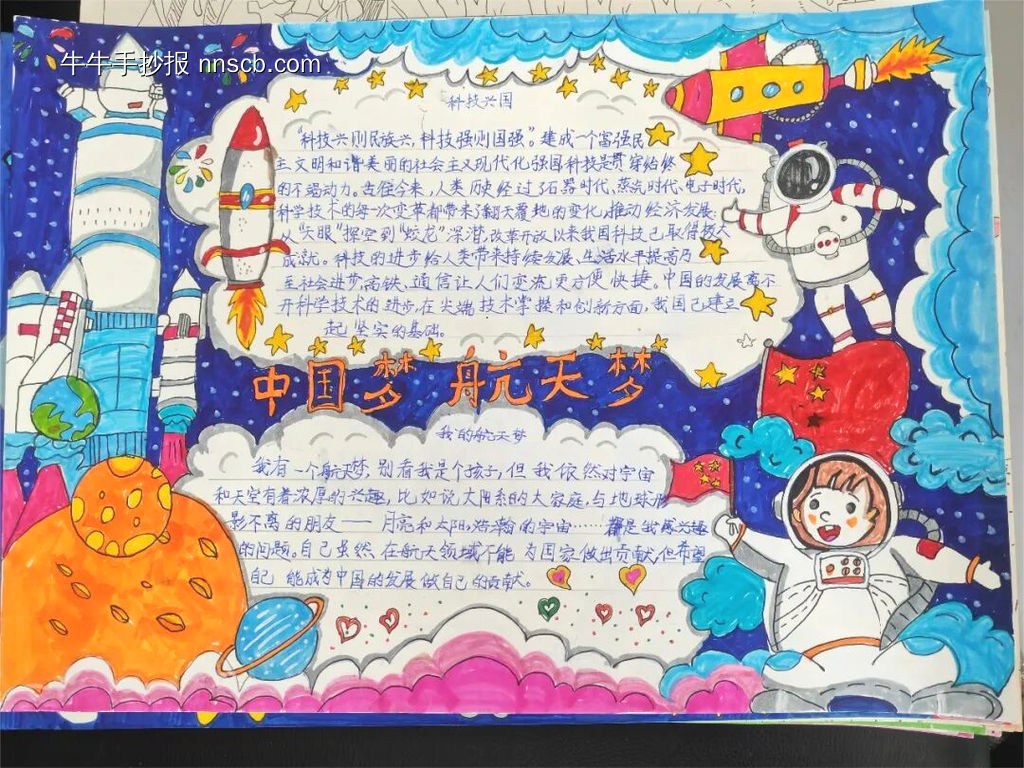 牛牛手抄报 nnscb.com
科技兴国
“科技兴则民族兴，科技强则国强”。建成一个富强民
主文明和谐美丽的社会主义现代化强国科技是贯穿始终
的不竭动力。古往今来，人类历史经过了石器时代、蒸汽时代、电子时代，
科学技术的每一次变革都带来了翻天覆地的变化，推动经济发展。
从“天眼”探空到“蛟龙”深潜，改革开放以来我国科技已取得极大
成就。科技的进步给人类带来持续发展、生活水平提高乃
至社会进步，高铁、通信让人们交流更方便快捷。中国的发展离不
开科学技术的进步，在尖端技术掌握和创新方面，我国已建立
起坚实的基础。
中国梦 航天梦
我的航天梦
我有一个航天梦，别看我是个孩子，但我依然对宇宙
和天空有着浓厚的兴趣，比如说太阳系的大家庭，与地球形
影不离的朋友——月亮和太阳，浩瀚的宇宙……都是我感兴趣
的问题。自己虽然在航天领域不能为国家做出贡献，但希望
自己能成为中国的发展做自己的贡献。